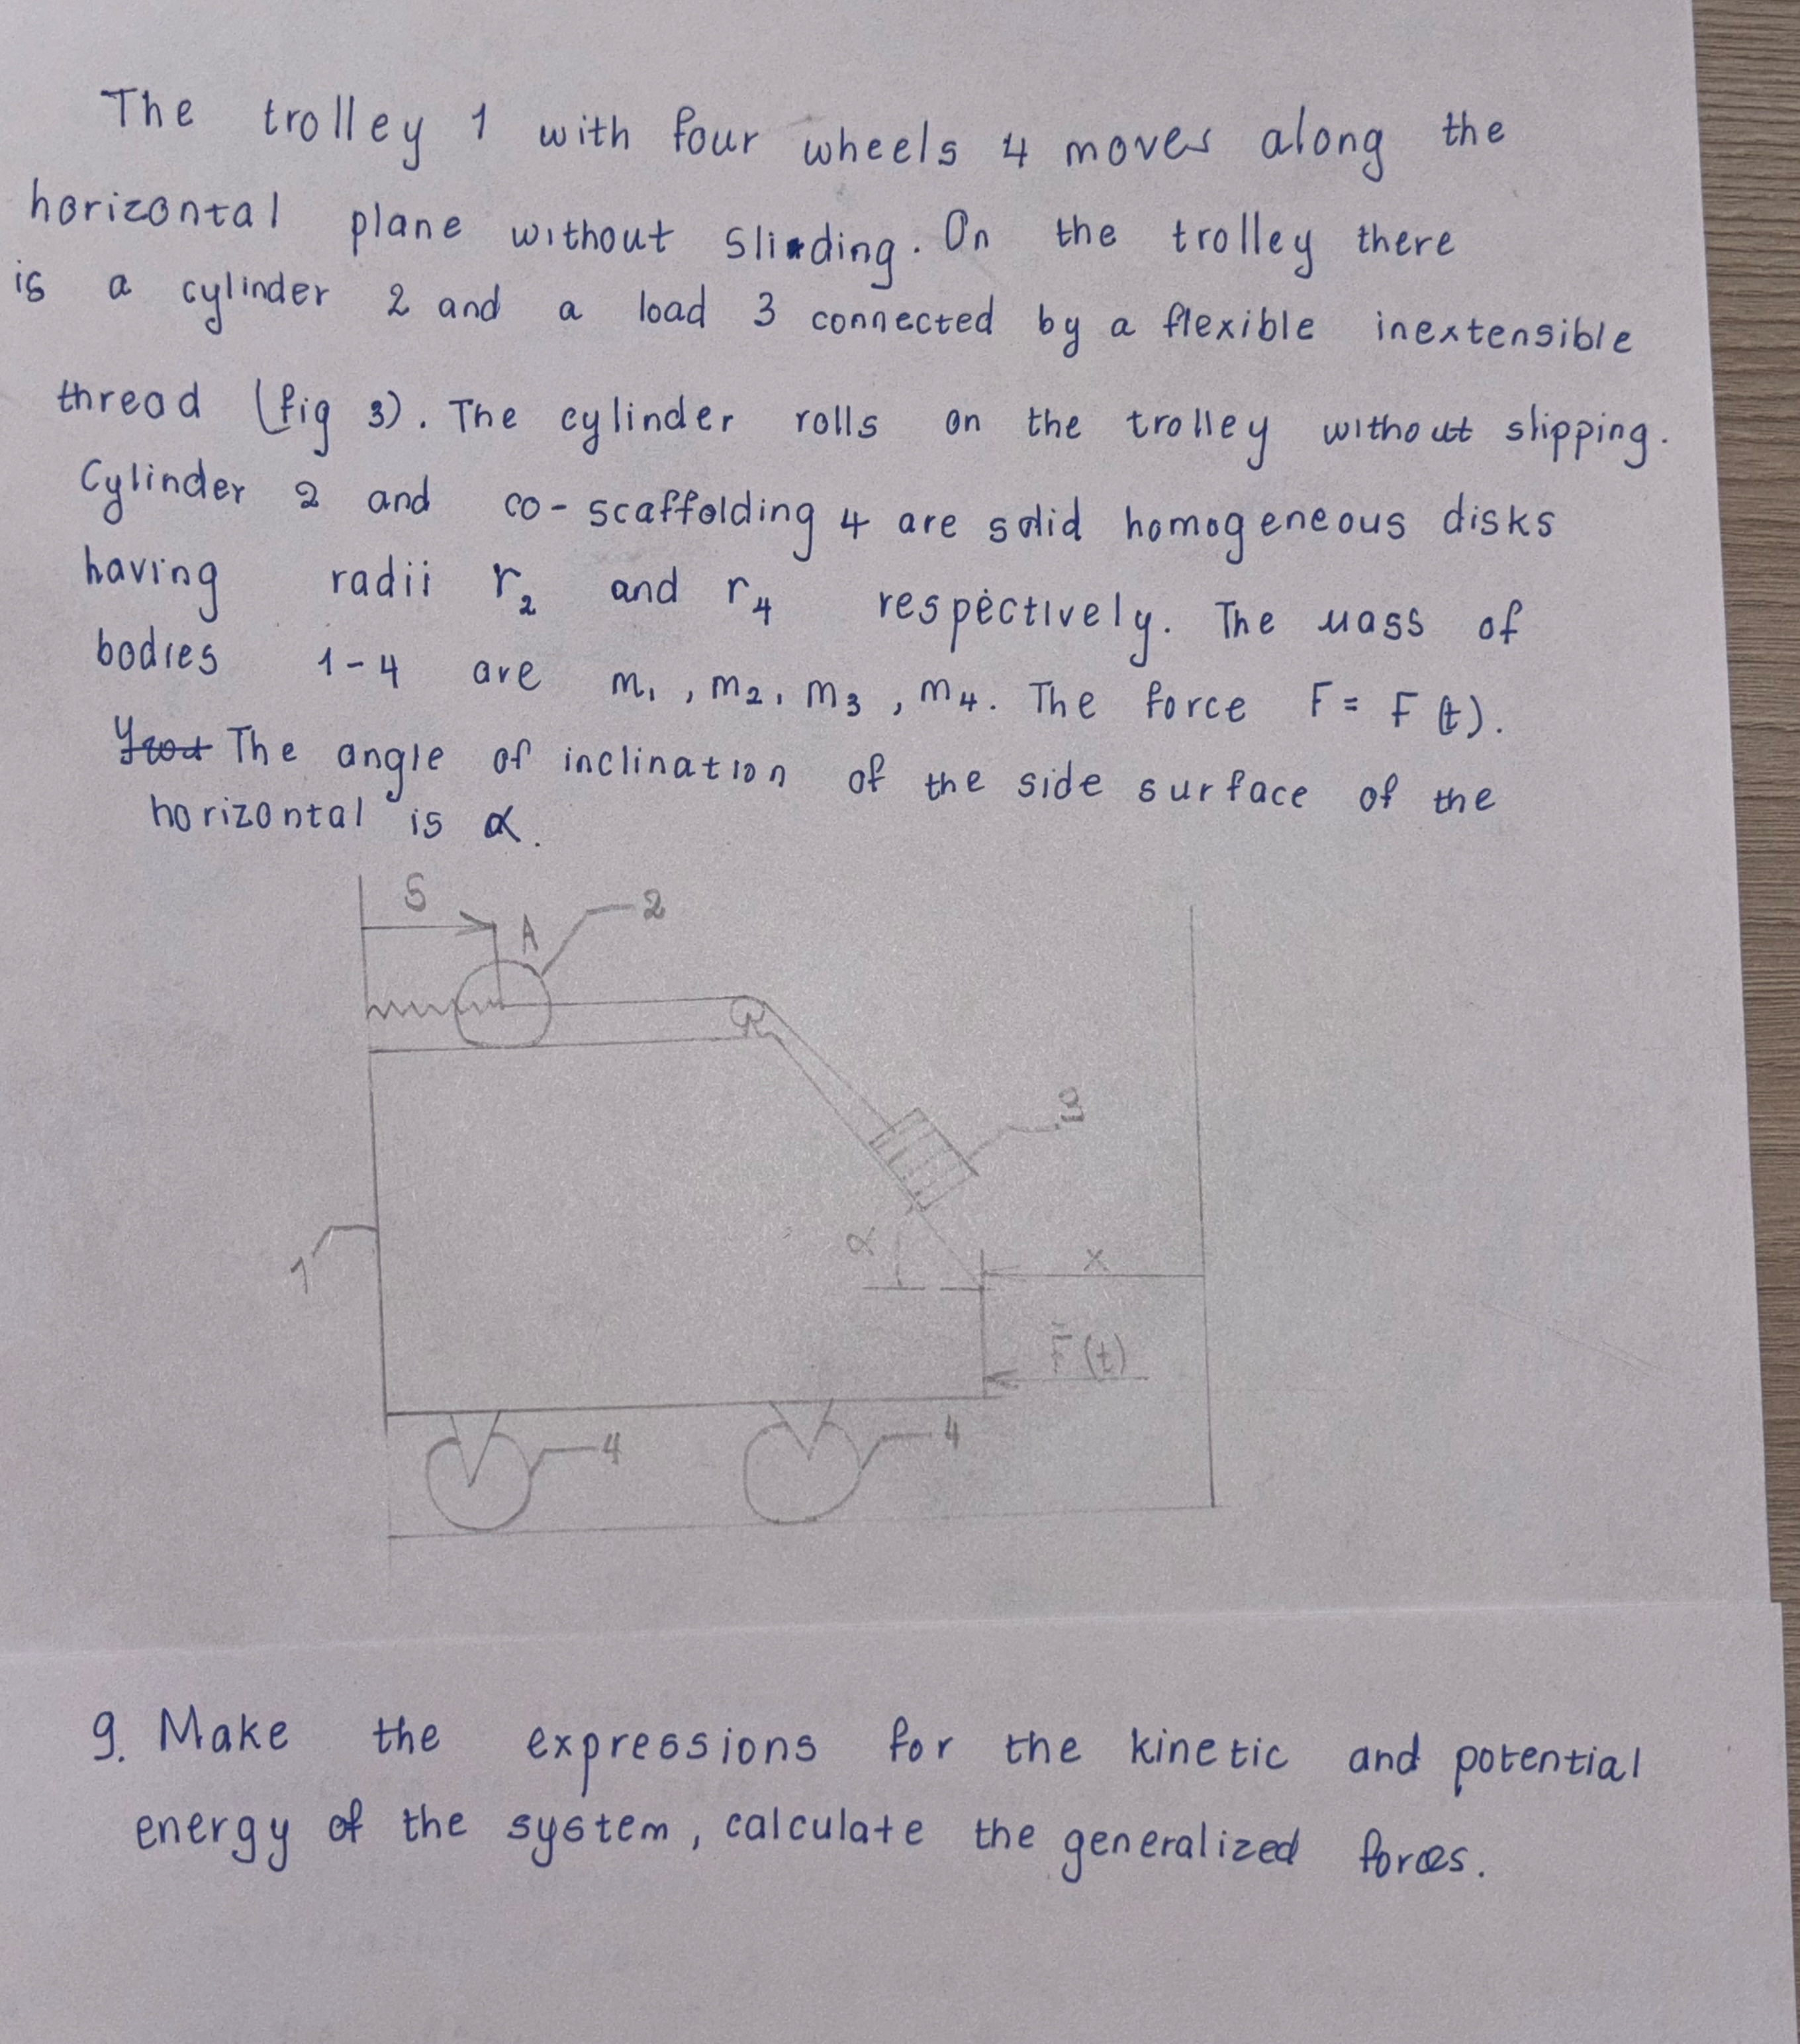 The trolley 1 with four wheels 4 moves along the
horizontal plane without sliding. On the trolley there
is a cylinder 2 and a load 3 connected by a flexible inextensible
thread (fig 3). The cylinder rolls on the trolley without slipping.
Cylinder 2 and co-scaffolding 4 are solid homogeneous disks
having radii r₂ and r₄ respectively. The mass of
bodies 1-4 are m₁, m₂, m₃, m₄. The force F = F(t).
The angle of inclination of the side surface of the
horizontal is α.
S
A
2
3
α
x
1
F̄(t)
4
4
9. Make the expressions for the kinetic and potential
energy of the system, calculate the generalized forces.